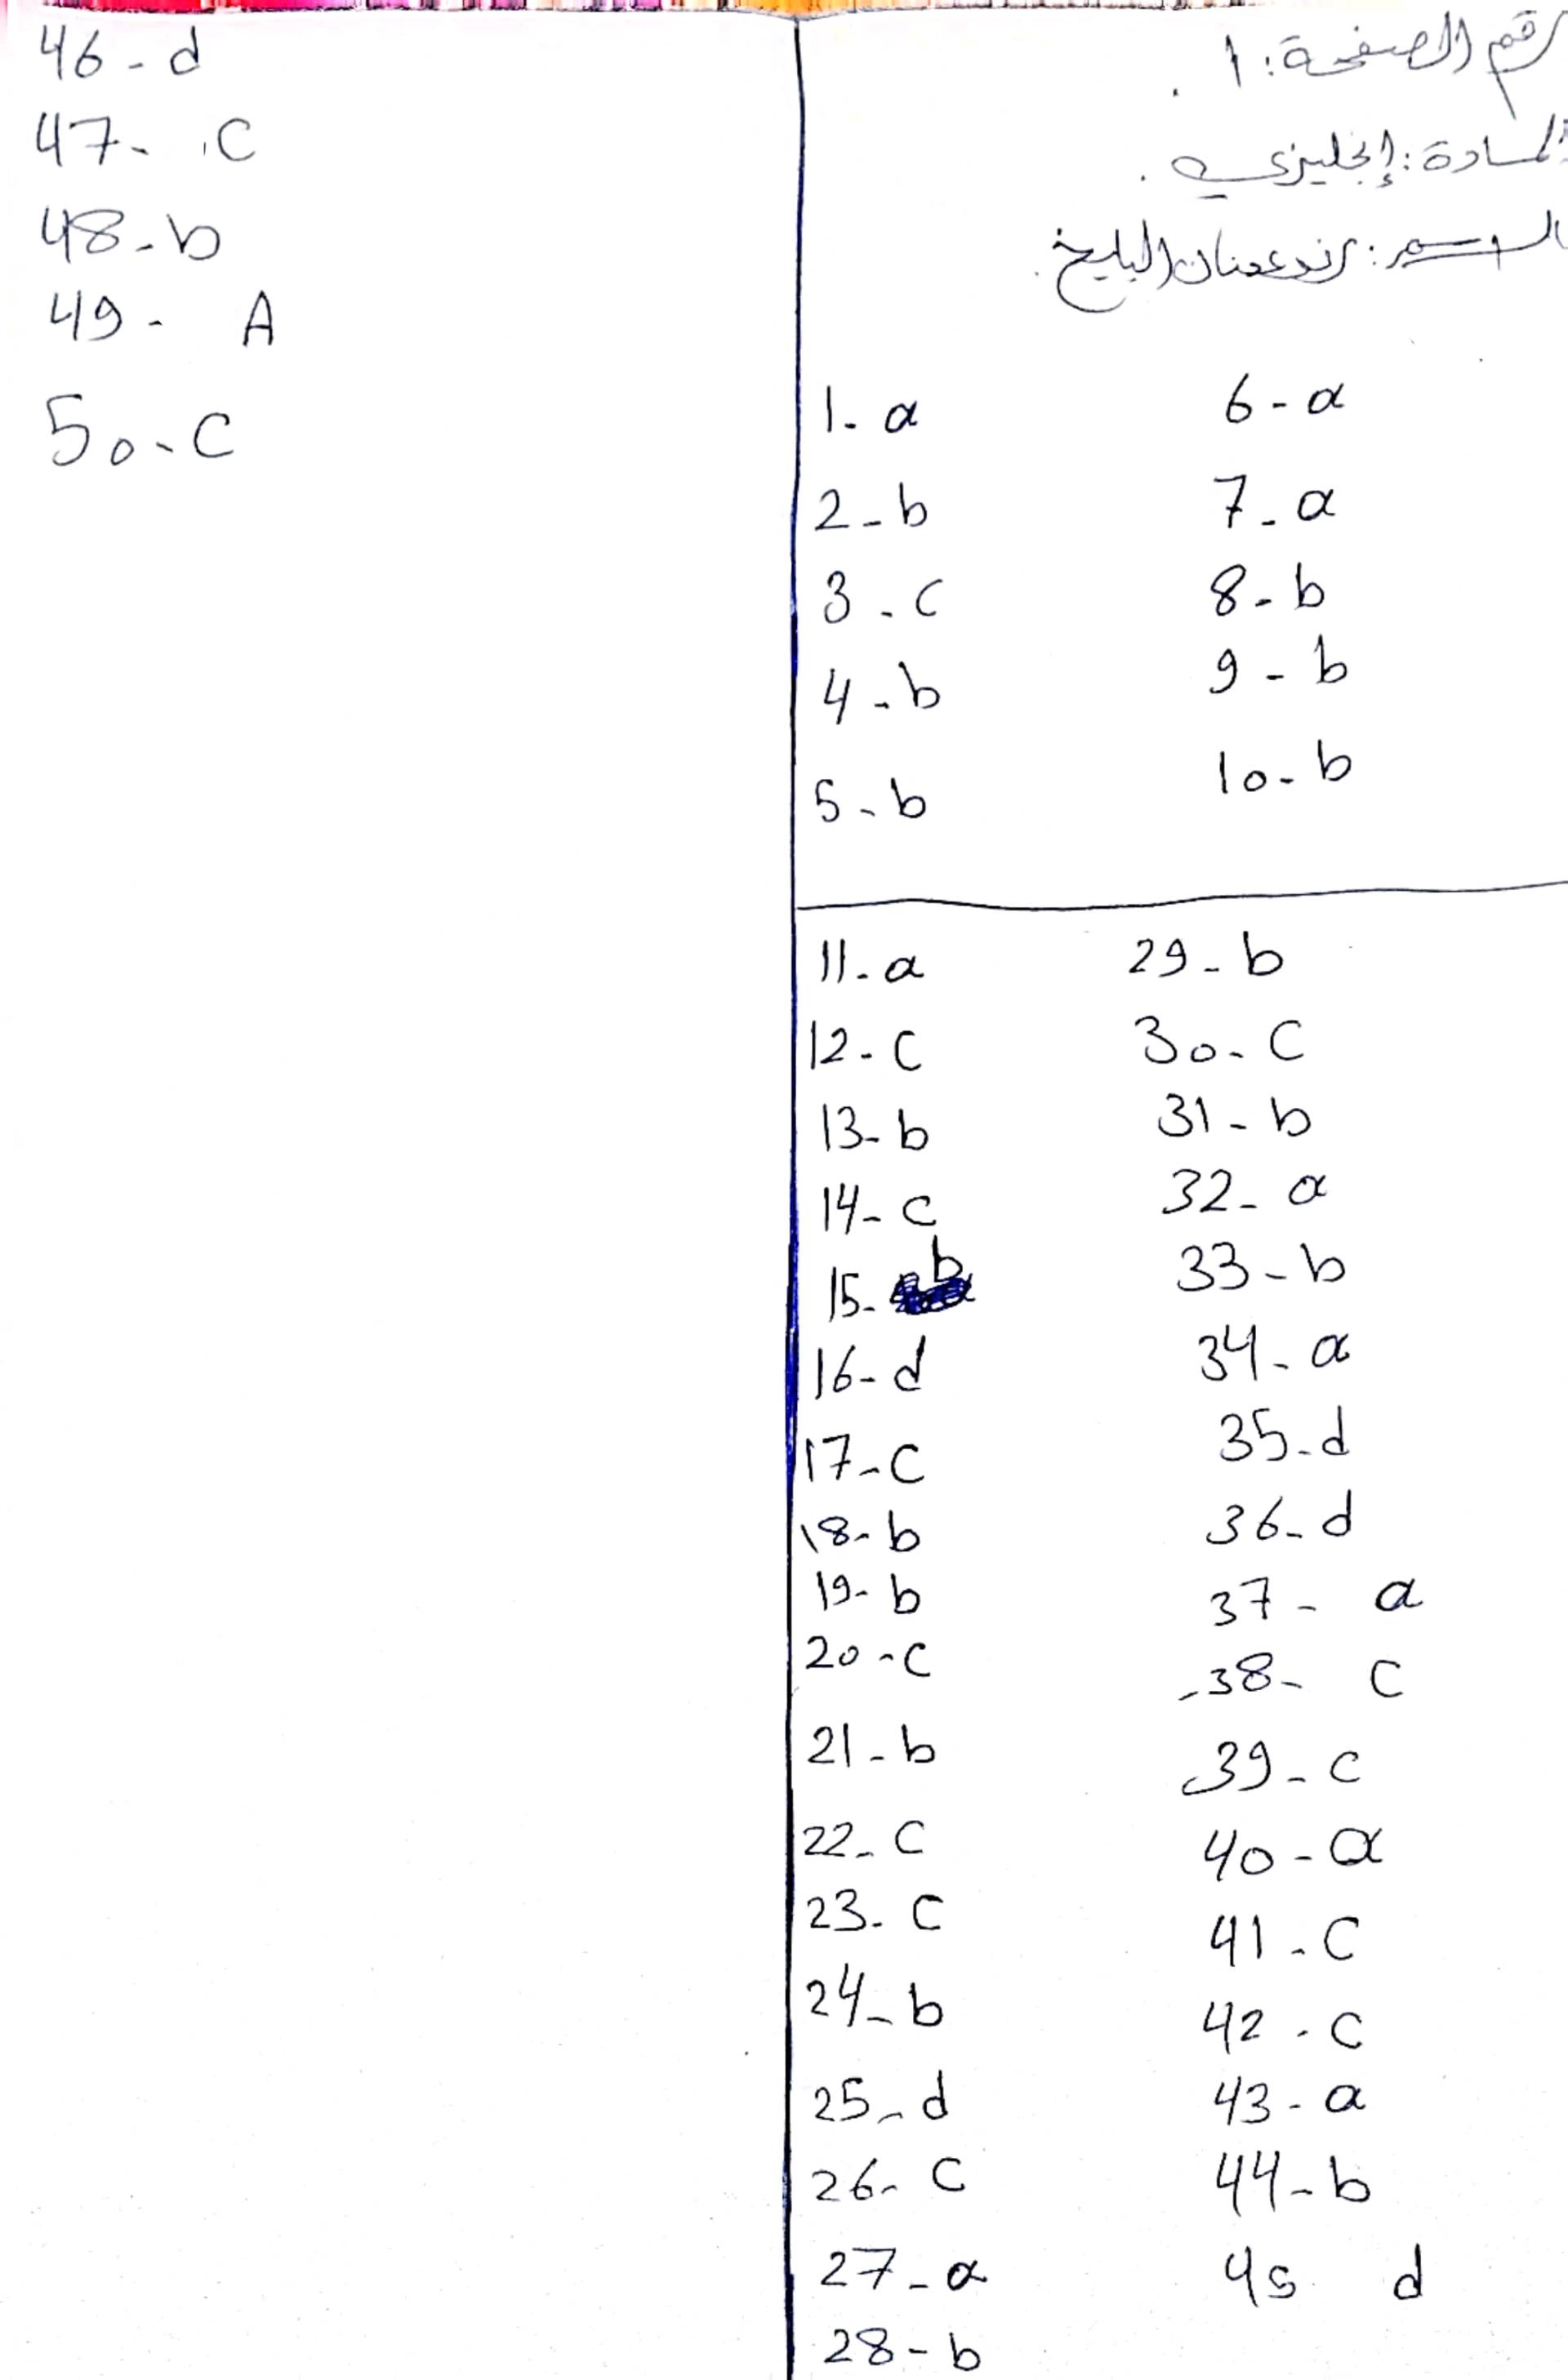 رقم الصفحة: ١.
المادة: إنجليزي.
الاسم: رند عدنان البليخ.
1. a
2 - b
3 - c
4 - b
5 - b
6 - a
7 - a
8 - b
9 - b
10 - b
11. a
12 - c
13 - b
14 - c
15 - b
16 - d
17 - c
18 - b
19 - b
20 - c
21 - b
22 - c
23 - c
24 - b
25 - d
26 - c
27 - a
28 - b
29 - b
30 - c
31 - b
32 - a
33 - b
34 - a
35 - d
36 - d
37 - a
38 - c
39 - c
40 - a
41 - c
42 - c
43 - a
44 - b
45 d
46 - d
47 - c
48 - b
49 - A
50 - c